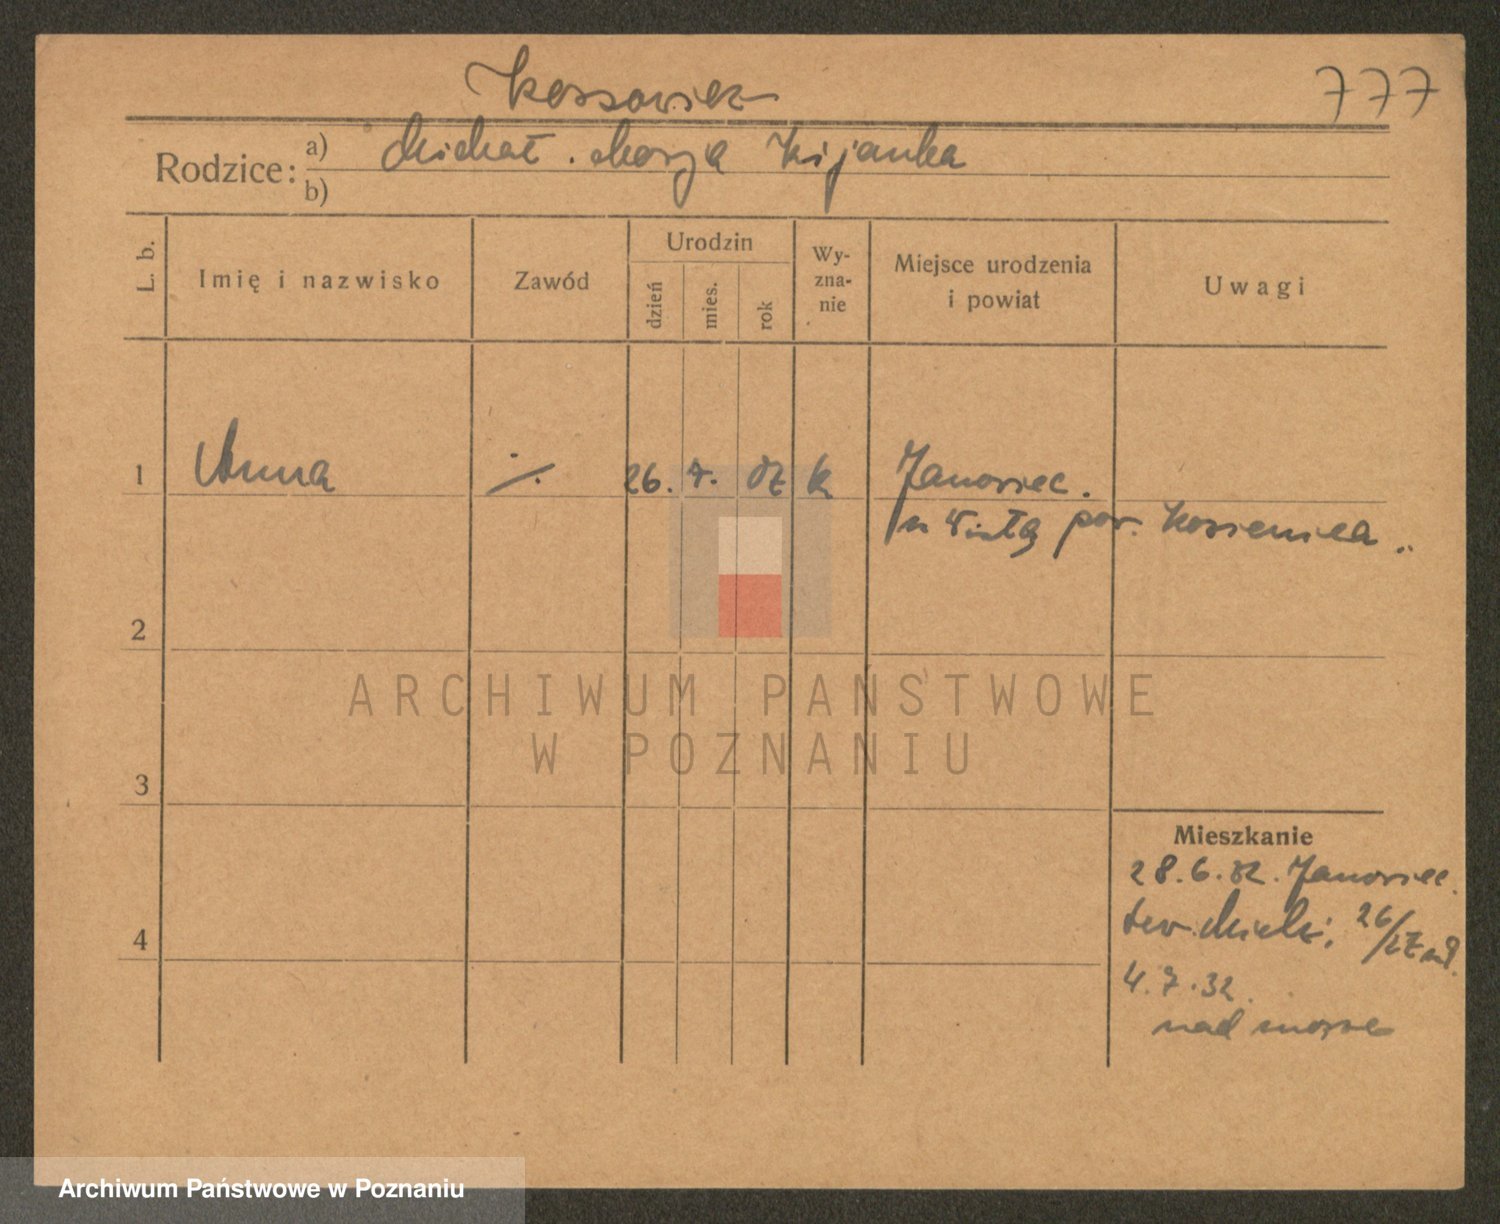 Kossowicz
777
Rodzice: a) Michał . Marya Kijanka
b)
L. b.
Imię i nazwisko
Zawód
Urodzin
dzień
mies.
rok
Wy-
zna-
nie
Miejsce urodzenia
i powiat
Uwagi
1 Anna ./. 26. 7. k Janowiec.
n Wisłą pow. Kozienice ..
2
3
4
ARCHIWUM PAŃSTWOWE
W POZNANIU
Mieszkanie
28.6.32. Janowiec.
26/
4.7.32.
nad morze
Archiwum Państwowe w Poznaniu